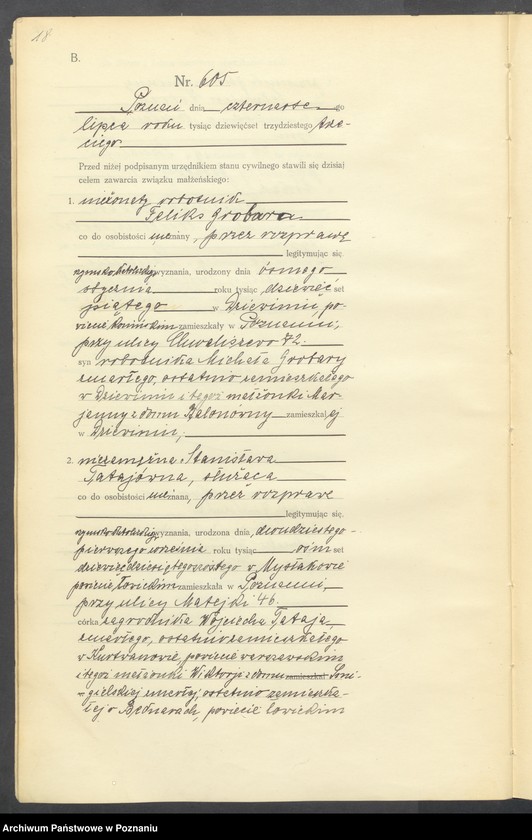 18
B.
Nr. 605
Poznań dnia czternaste go
lipca roku tysiąc dziewięćset trzydziestego trze-
ciego
Przed niżej podpisanym urzędnikiem stanu cywilnego stawili się dzisiaj
celem zawarcia związku małżeńskiego:
1. nieżonaty robotnik
Feliks Grobara
co do osobistości nieznany, przez rozprawę
legitymując się.
rzymsko katolickiego wyznania, urodzony dnia ósmego
stycznia roku tysiąc dziewięć set
piątego w Dziewinie, po-
wiecie zamieszkały w Poznaniu,
przy ulicy Chwaliszewo 72.
syn robotnika Michała Grobary
zmarłego, ostatnio zamieszkałego
w Dziewiniu i tegoż małżonki Mar-
janny z domu zamieszkałej
w Dziewiniu,
2. niezamężna Stanisława
Tatajówna, służąca
co do osobistości nieznana, przez rozprawę
legitymując się.
rzymsko katolickiego wyznania, urodzona dnia dwudziestego-
pierwszego września roku tysiąc ośm set
dziewięćdziesiątego szóstego w
powiecie Łowickim zamieszkała w Poznaniu,
przy ulicy Matejki 46.
córka zagrodnika Wojciecha Tataja,
zmarłego, ostatnio zamieszkałego
w powiecie warszawskim
i tegoż małżonki Wiktorji z domu zamieszkał
zmarłej, ostatnio zamieszka-
łej w Bednarach, powiecie łowickim
Archiwum Państwowe w Poznaniu